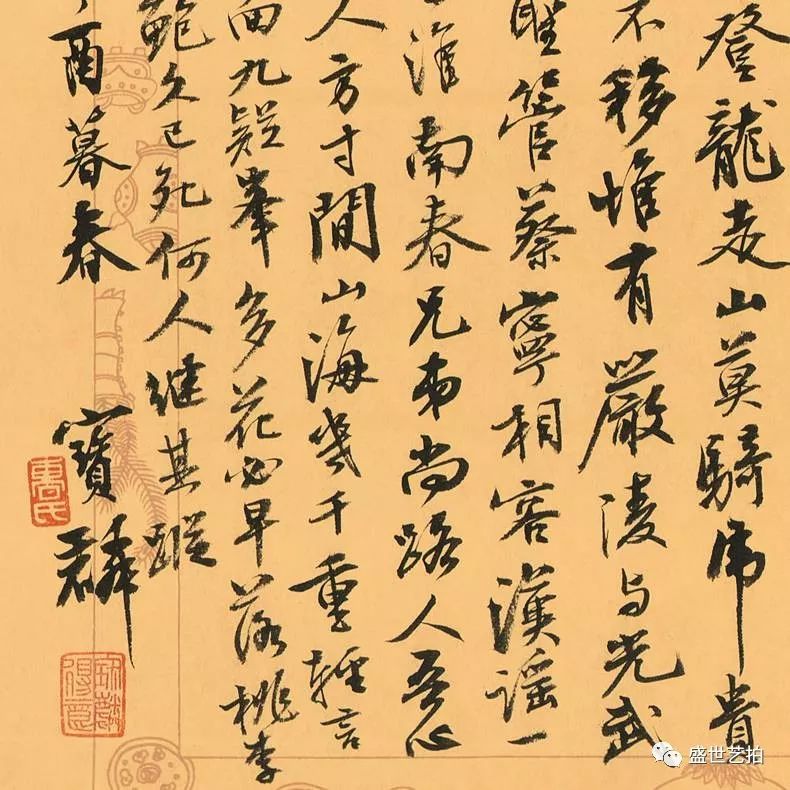 登龍走山莫騎虎貴
不移惟有嚴陵与光武
聖管蔡寧相容漢謡一
淮南春兄弟尚路人吾心
人方寸間山海幾千重輕言
面九疑峯多花必早落桃李
鮑久已死何人继其蹤
酉暮春
寶麟
盛世艺拍